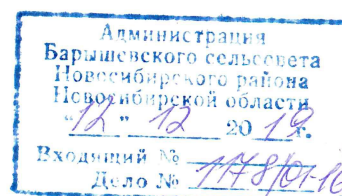 Администрация
Барышевского сельсовета
Новосибирского района
Новосибирской области
"12" 12 2019г.
Входящий № 1178/01-16
Дело №